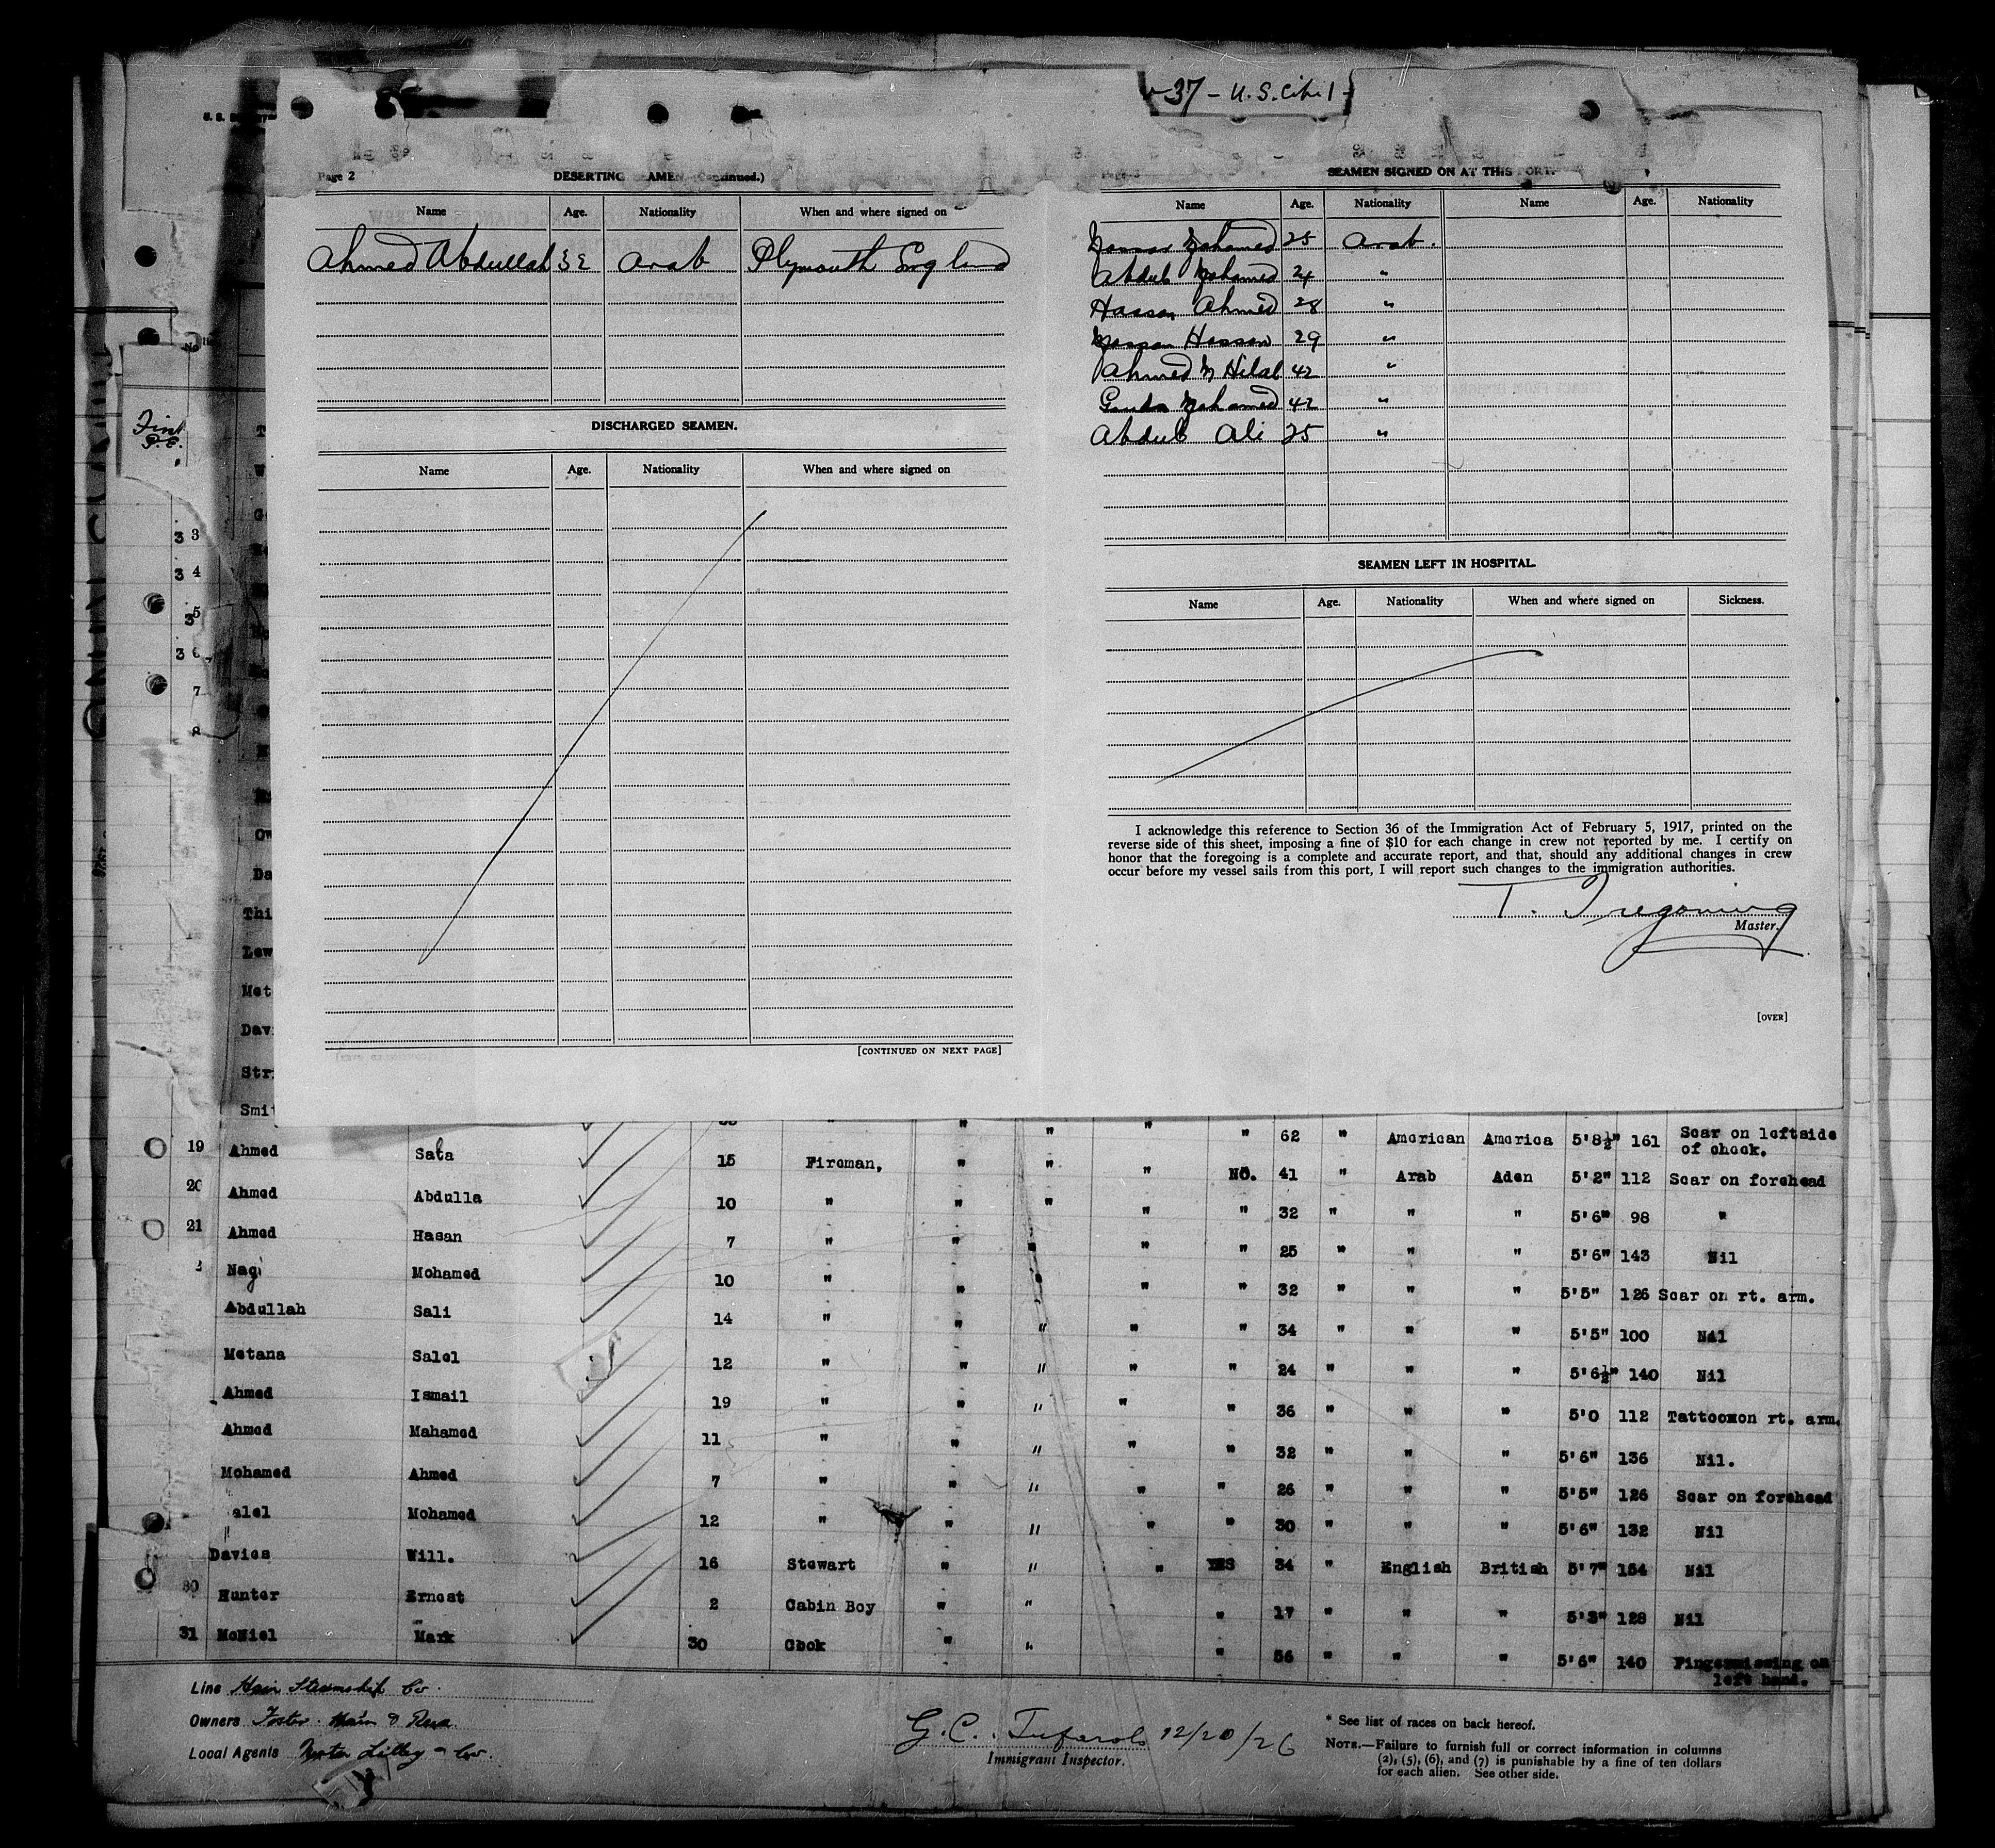 -37- U.S. Cit. 1-
Page 2
DESERTING SEAMEN (Continued.)
Name Age. Nationality When and where signed on
Ahmed Abdullah 32 Arab Plymouth England
DISCHARGED SEAMEN.
Name Age. Nationality When and where signed on
[CONTINUED ON NEXT PAGE]
SEAMEN SIGNED ON AT THIS PORT.
Name Age. Nationality Name Age. Nationality
Mohamed 25 Arab.
Abdul Mohamed 24 "
Hassan Ahmed 28 "
Hassan 29 "
Ahmed M Hilal 42 "
Mohamed 42 "
Abdul Ali 25 "
SEAMEN LEFT IN HOSPITAL.
Name Age. Nationality When and where signed on Sickness.
I acknowledge this reference to Section 36 of the Immigration Act of February 5, 1917, printed on the
reverse side of this sheet, imposing a fine of $10 for each change in crew not reported by me. I certify on
honor that the foregoing is a complete and accurate report, and that, should any additional changes in crew
occur before my vessel sails from this port, I will report such changes to the immigration authorities.
T. Tregoning
Master.
[OVER]
First
P.E.
3 3
3 4
3 5
3 6
7
8
Ow
Da
Thi
Lew
Met
Dav
Str
Smit
" " " " " 62 " American America 5'8½" 161 Scar on leftside
of cheek.
19 Ahmed Sala 15 Fireman, " " " NO. 41 " Arab Aden 5'2" 112 Scar on forehead
20 Ahmed Abdulla 10 " " " " " 32 " " " 5'6" 98 "
21 Ahmed Hasan 7 " " " " " 25 " " " 5'6" 143 Nil
Nagi Mohamed 10 " " " " 32 " " " 5'5" 126 Scar on rt. arm.
Abdullah Sali 14 " " " " " 34 " " " 5'5" 100 Nil
Metana Salel 12 " " " " " 24 " " " 5'6½" 140 Nil
Ahmed Ismail 19 " " " " " 36 " " " 5'0 112 Tattooxon rt. arm.
Ahmed Mahamed 11 " " " " " 32 " " " 5'6" 136 Nil.
Mohamed Ahmed 7 " " " " " 26 " " " 5'5" 126 Scar on forehead
alel Mohamed 12 " " " " " 30 " " " 5'6" 132 Nil
Davies Will. 16 Stewart " " " YES 34 " English British 5'7" 154 Nil
30 Hunter Ernest 2 Cabin Boy " " " 17 " " " 5'3" 128 Nil
31 McNiel Mark 30 Cook " " " 56 " " " 5'6" 140 Fingermissing on
left hand.
Line Hain Steamship Co.
Owners Foster. Hain & Read
Local Agents Lilley & Co.
G. C. 12/20/26
Immigrant Inspector.
* See list of races on back hereof.
NOTE.—Failure to furnish full or correct information in columns
(2), (5), (6), and (7) is punishable by a fine of ten dollars
for each alien. See other side.